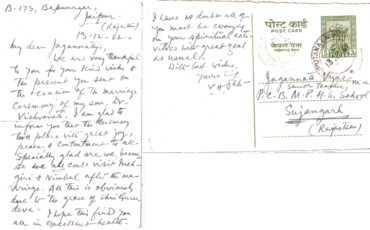 B-173, Bapunagar,
Jaipur.
(Rajasthan)
13-12-62.
My dear Jagannathji,
We are very thankful
to you for your kind wishes &
the present you sent on
the occasion of the marriage
ceremony of my son, Dr.
Vishvanath. I am glad to
inform you that the ceremony
took place with great joy,
peace & contentment to all.
Specially glad are we because
we could visit
giri & Nimbal after the ma-
rriage. All this is obviously
due to the grace of Shri Guru
deva. I hope this finds you
all in excellent health.
I have no doubt all of
you must be carrying
on your spiritual acti-
vities with great zeal
as usual.
With best wishes,
Yours
पोस्ट कार्ड
POST CARD
केवल पता
ADDRESS ONLY
Jagannath Vyas, M.A.
Senior Teacher,
P. C. B. M. P. H. S. School
Sujangarh
(Rajasthan)